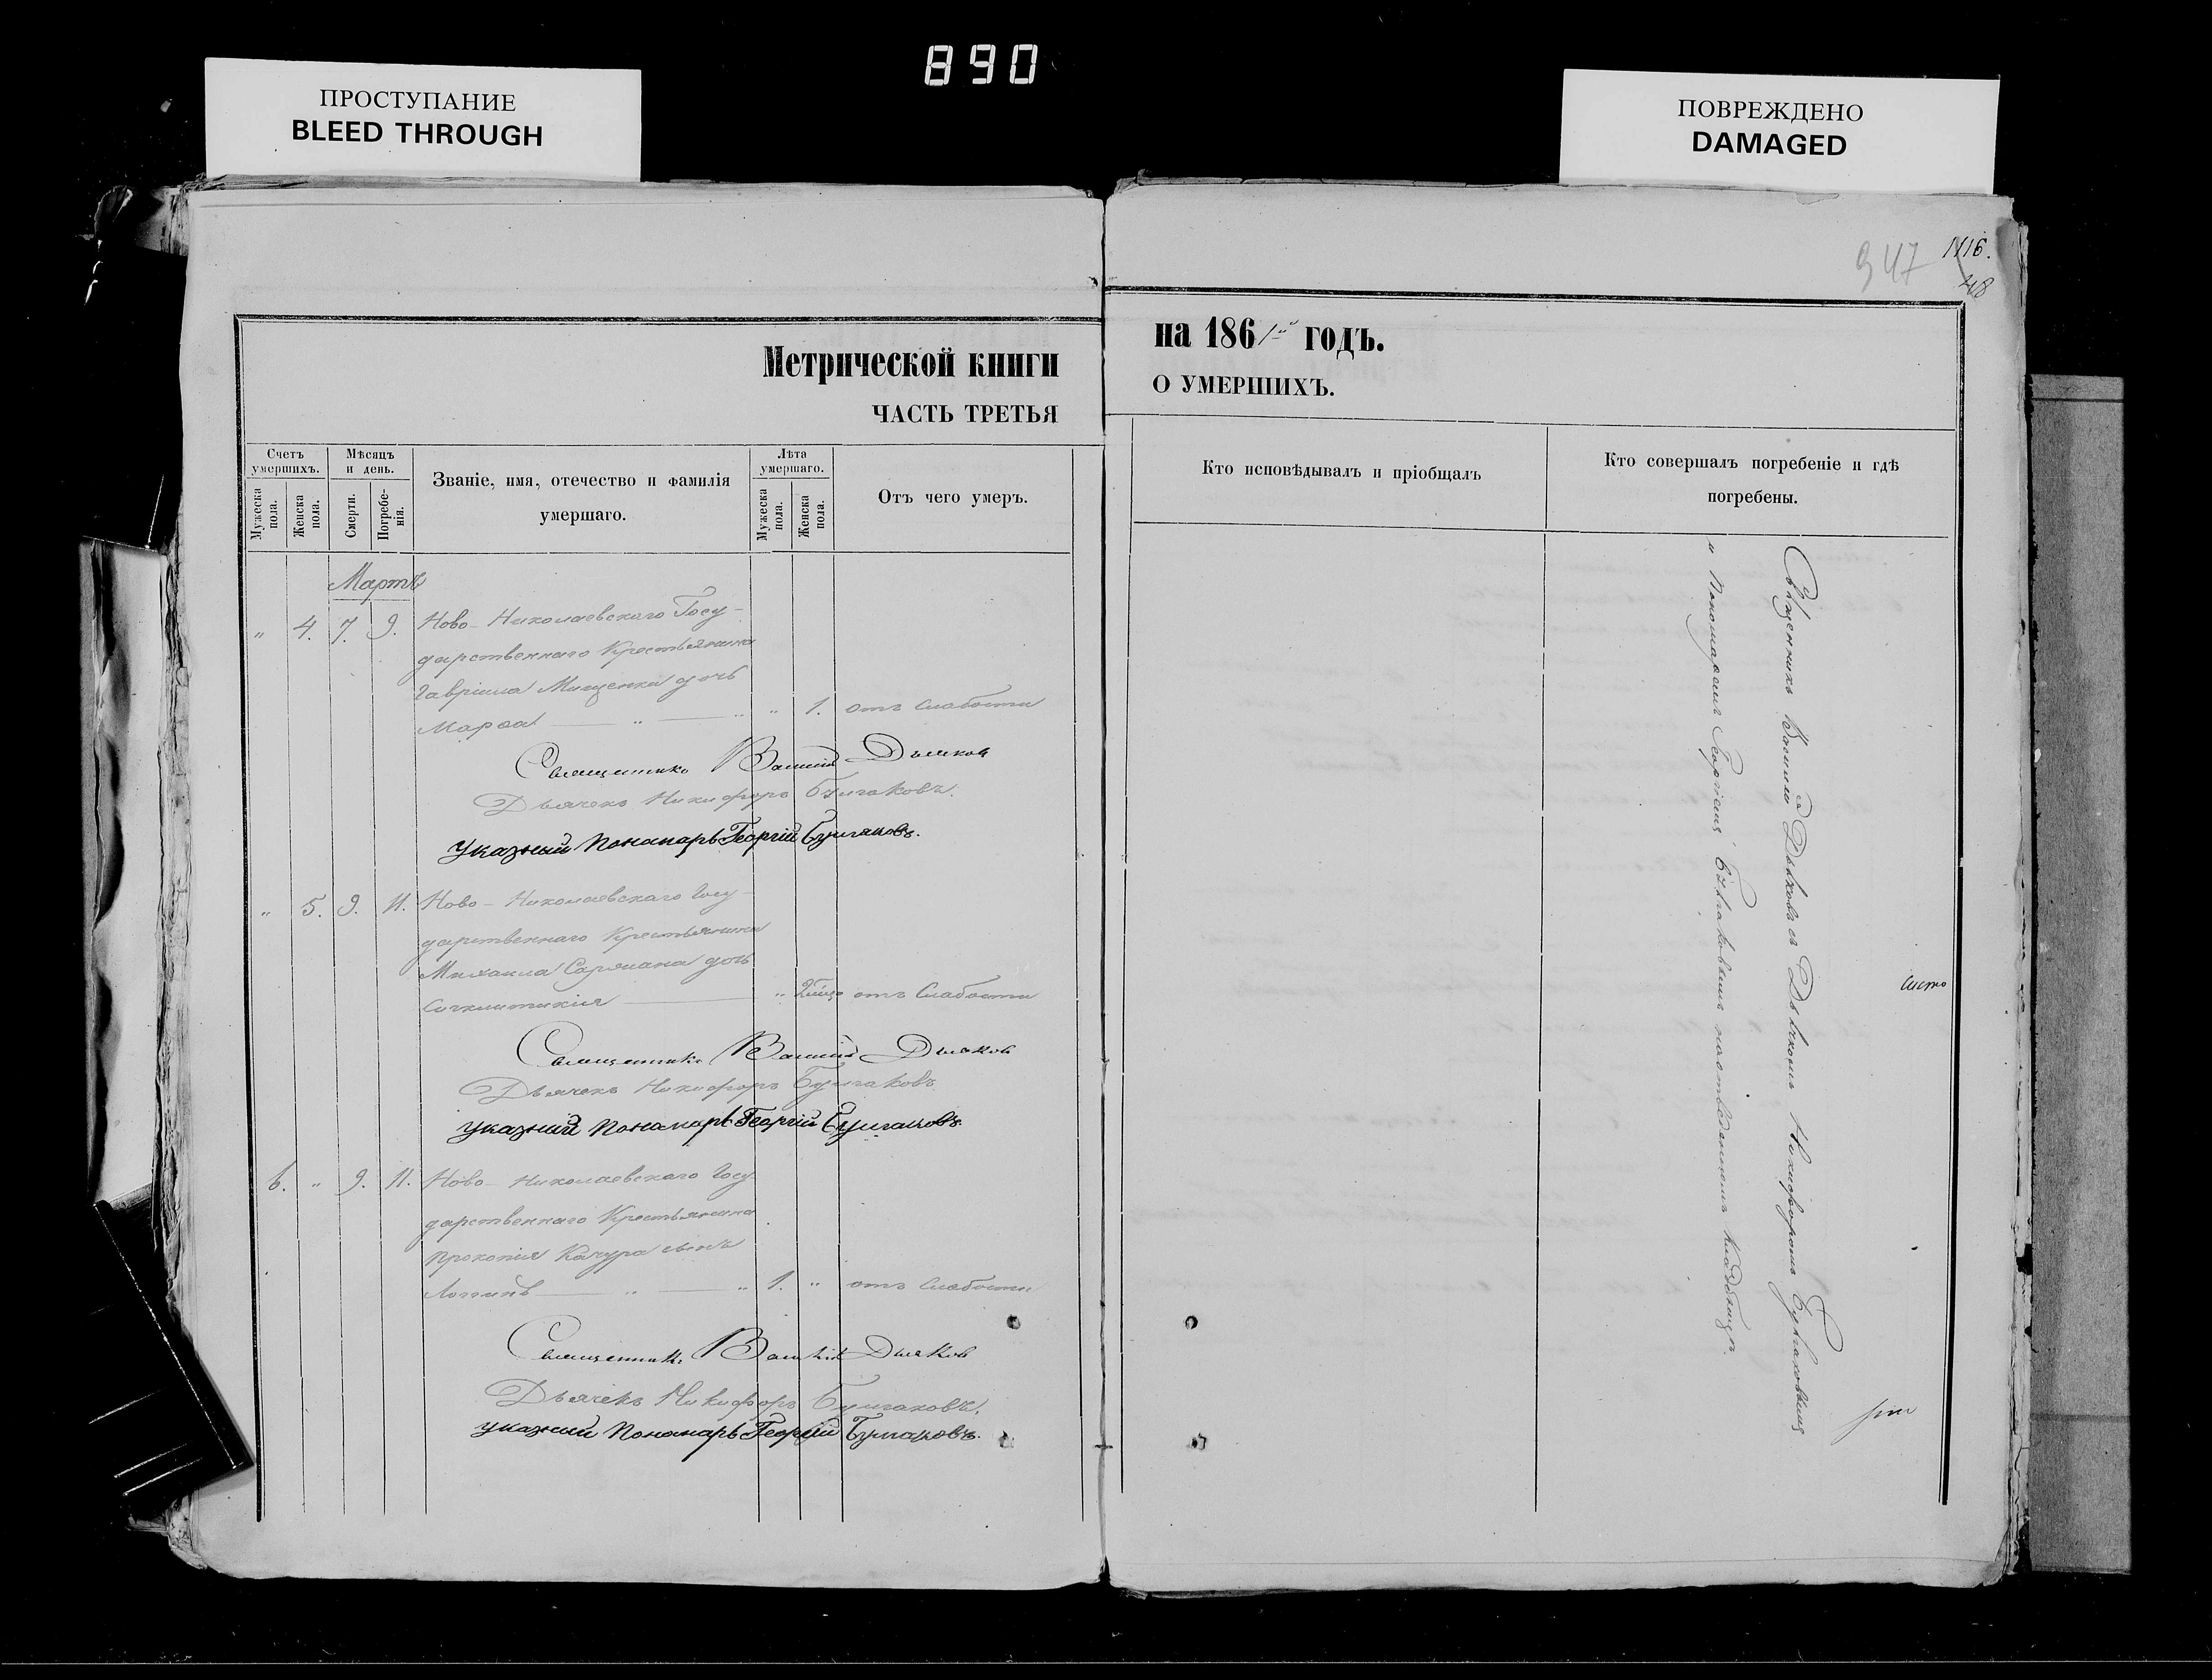 890
ПРОСТУПАНИЕ
BLEED THROUGH
ПОВРЕЖДЕНО
DAMAGED
947
1116.
48
Метрической книги
ЧАСТЬ ТРЕТЬЯ
Счетъ умершихъ.
Мужеска пола.
Женска пола.
Мѣсяцъ и день.
Смерти.
Погребе-нія.
Званіе, имя, отечество и фамилія
умершаго.
Лѣта умершаго.
Мужеска пола.
Женска пола.
Отъ чего умеръ.
Мартъ
" 4. 7. 9. Ново-Николаевскаго Госу-
дарственнаго Крестьянина
Гавріила Мищенка дочь
Марѳа " " " 1. отъ Слабости
Священникъ Василій Дьяков
Дьячекъ Никифоръ Булгаковъ.
Указный Пономарь Георгій Булгаковъ.
" 5. 9. 11. Ново-Николаевскаго Госу-
дарственнаго Крестьянина
Михаила дочь
" отъ Слабости
Священникъ Василій Дьяков
Дьячекъ Никифоръ Булгаковъ
Указный Пономарь Георгій Булгаковъ.
6. " 9. 11. Ново-Николаевскаго Госу
дарственнаго Крестьянина
Прокопія Качура сынъ
Логгинъ " " 1. " отъ Слабости
Священникъ Василій Дьяков
Дьячекъ Никифоръ Булгаковъ.
Указный Пономарь Георгій Булгаковъ.
на 1861й годъ.
О УМЕРШИХЪ.
Кто исповѣдывалъ и пріобщалъ
Кто совершалъ погребеніе и гдѣ
погребены.
Священникъ Василій Дьяковъ съ Дьячкомъ Никифоромъ Булгаковымъ
и Пономаремъ Георгіемъ Булгаковымъ на отведенномъ кладбищѣ.